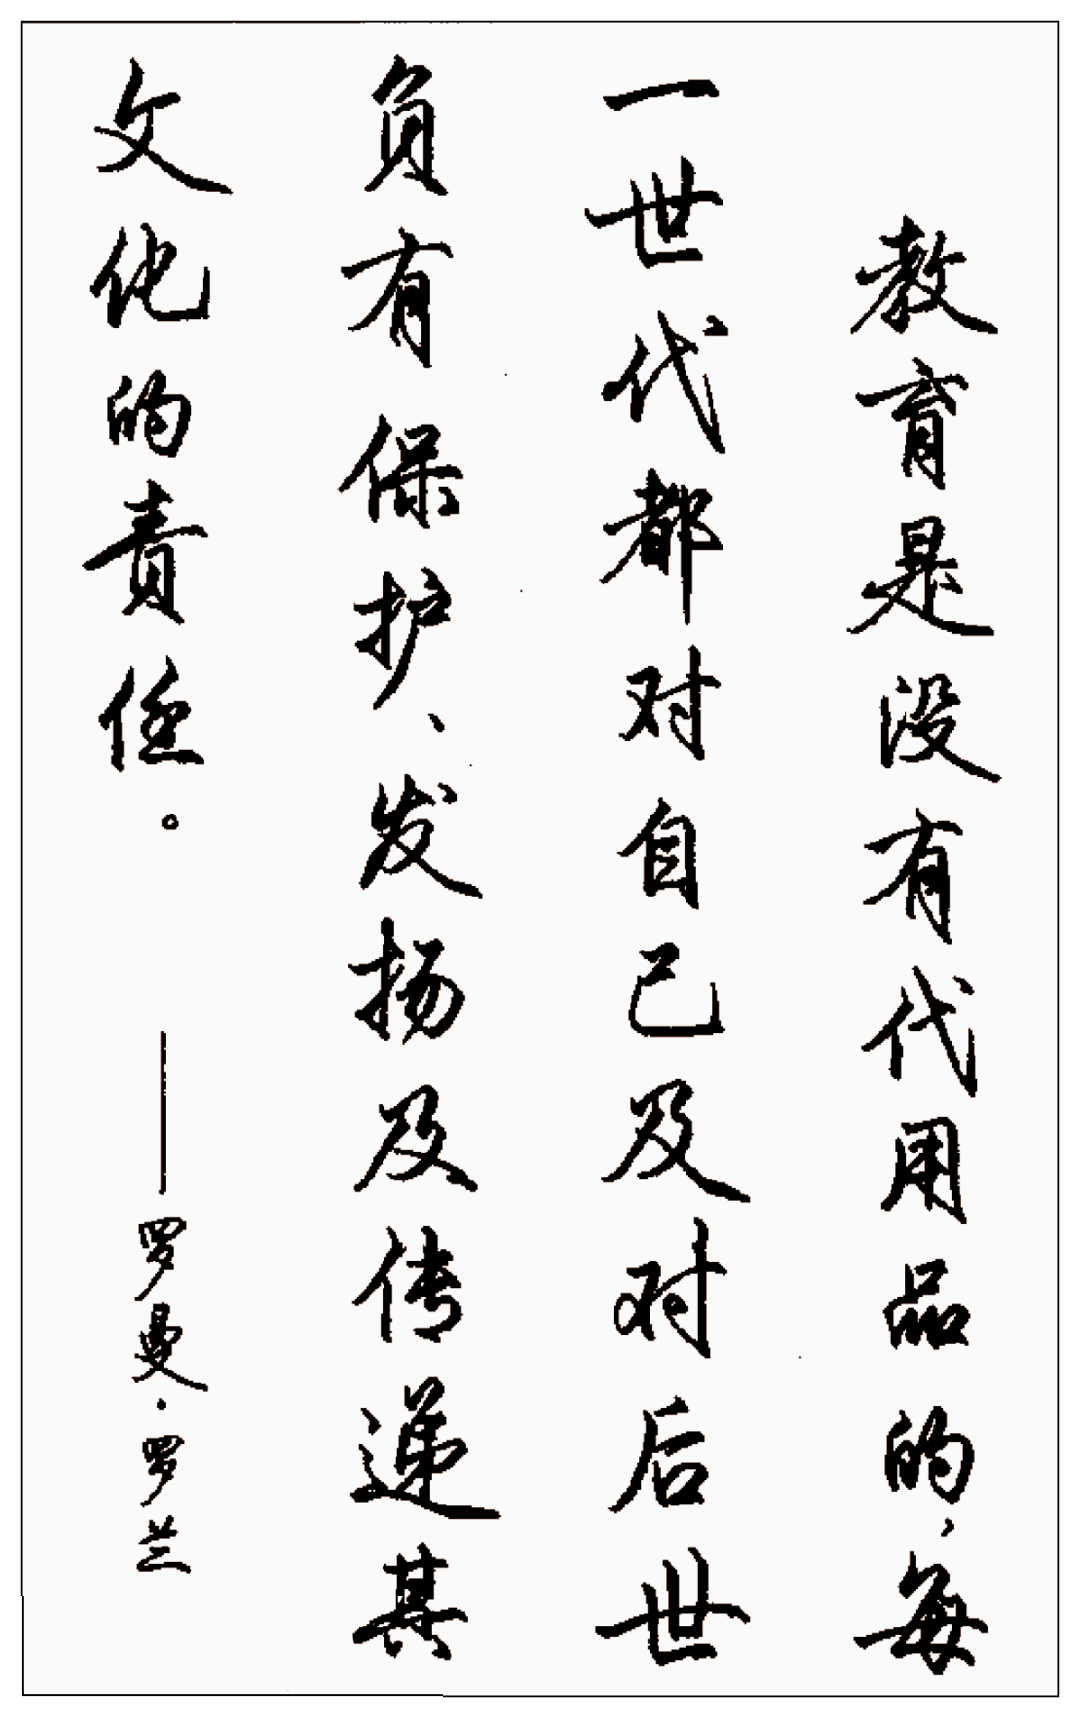 教育是没有代用品的，每
一世代都对自己及对后世
负有保护、发扬及传递其
文化的责任。 ——罗曼·罗兰